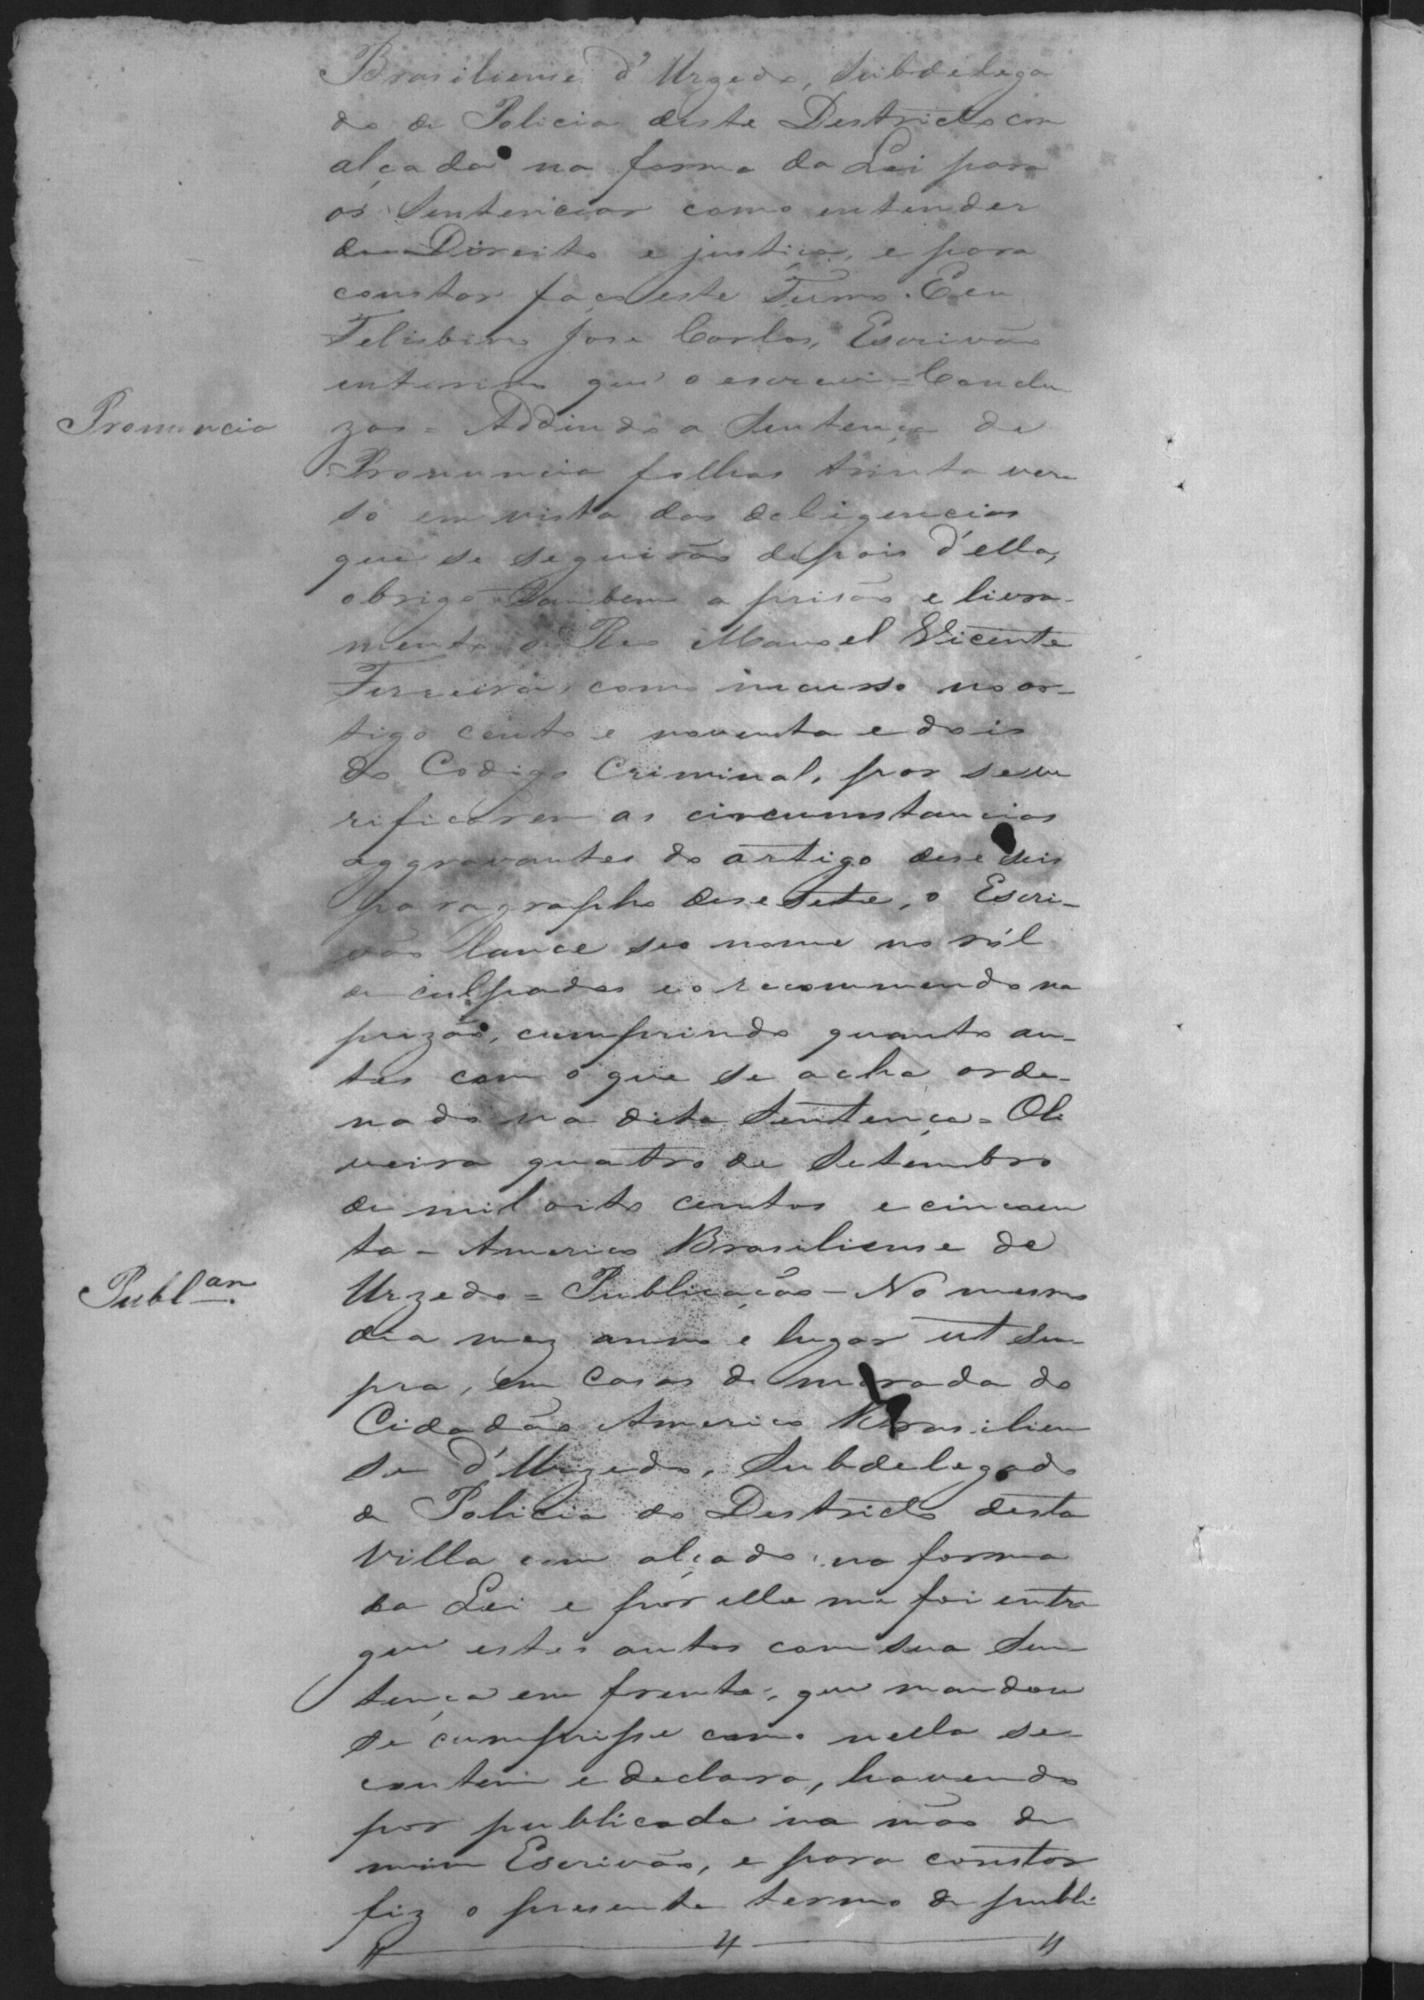 Brasiliense d'Urzedo, Subdelega
do de Policia deste Destricto com
alçada na forma da Lei para
os Sentenciar como entender
de Direito e justiça, e para
constar faço este Termo. E eu
Felisbino Jose Carlos, Escrivão
enterino que o escrevi = Conclu
Pronuncia
zos = Addindo a Sentença de
Pronuncia folhas trinta ver
so em vista das deligencias
que se seguirão depois d'ella,
obrigo tambem a prisão e livra-
mento o Reo Manoel Vicente
Ferreira, como incurso no ar-
tigo cento e noventa e dois
do Codigo Criminal, por se ve
rificarem as circumstancias
aggravantes do artigo deseseis
paragrapho desesete, o Escri-
vão lance seo nome no ról
de culpados e o recommendo na
prizão, cumprindo quanto an-
tes com o que se acha orde-
nado na dita Sentença = Oli
veira quatro de Setembro
de mil oito centos e cincoen
ta - Americo Brasiliense de
Publ.am
Urzedo = Publicação - No mesmo
dia mez anno e lugar ut su
pra, em casas de morada do
Cidadão Americo Brasilien
se d'Urzedo, Subdelegado
de Policia do Destricto desta
Villa com alçada na forma
da Lei e por elle me foi entre
gue estes autos com sua Sen
tença em frente, que mandou
se cumprisse como nella se
contem e declara, havendo
por publicada na mão de
mim Escrivão, e para constar
fiz o presente termo de publi